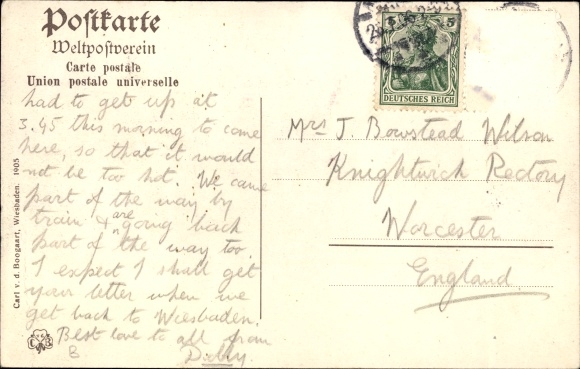 Postkarte
Weltpostverein
Carte postale
Union postale universelle
5
DEUTSCHES REICH
had to get up at
3.45 this morning to come
here, so that it would
not be too hot. We came
part of the way by
train & are going back
part of the way too.
I expect I shall get
your letter when we
get back to Wiesbaden.
Best love to all from
B
Mrs J. Bowstead Wilson
Knightwick Rectory
Worcester
England.
Carl v. d. Boogaart, Wiesbaden. 1905